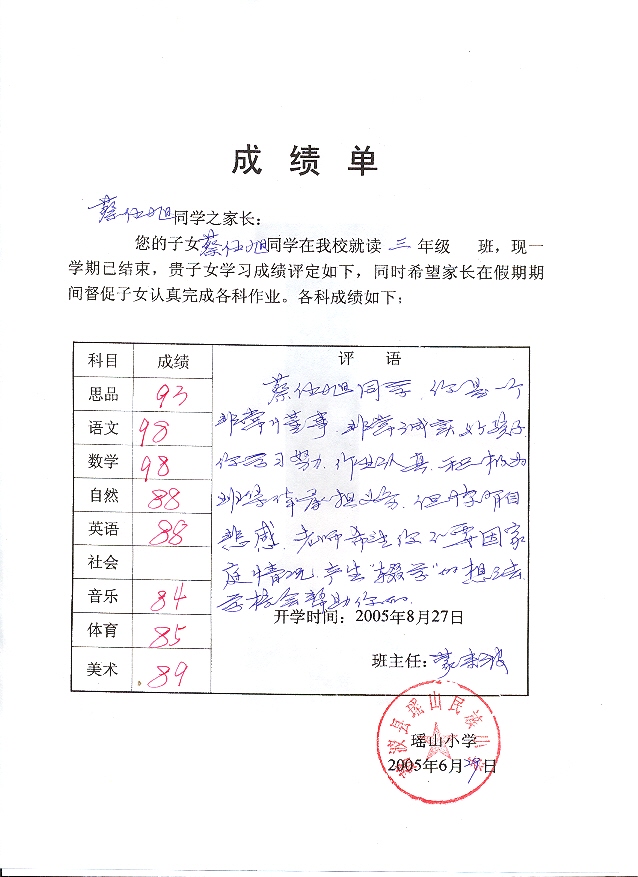 成绩单
蔡仕旭同学之家长：
您的子女蔡仕旭同学在我校就读 三 年级 班，现一
学期已结束，贵子女学习成绩评定如下，同时希望家长在假期期
间督促子女认真完成各科作业。各科成绩如下：
科目 成绩 评 语
思品 93
语文 98
数学 98
自然 88
英语 88
社会
音乐 84
体育 85
美术 89
蔡仕旭同学，你是一个
非常懂事、非常诚实的孩子，
你学习努力，作业认真，积极为
班集体
悲感，老师希望你不要因家
庭情况，产生“辍学”的想法，
学校会帮助你的。
开学时间：2005年8月27日
班主任：蒙
县瑶山民族小学
瑶山小学
2005年6月29日